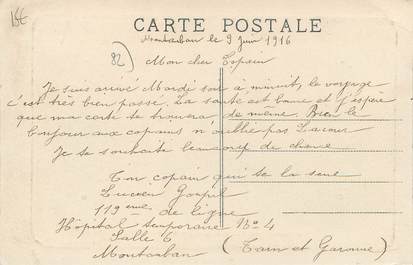 15€
CARTE POSTALE
Montauban le 9 Juin 1916
82
Mon cher
Je suis arrivé Mardi soir à minuit, le voyage
c'est très bien passé. La santé est bonne et j'espère
que ma carte te trouvera de même. Bien le
bonjour aux copains n'oublie pas
Je te souhaite beaucoup de chance
Ton copain qui te la serre
Lucien Goupil
119ème de ligne
Hôpital temporaire No 4
Salle 6
Montauban (Tarn et Garonne)